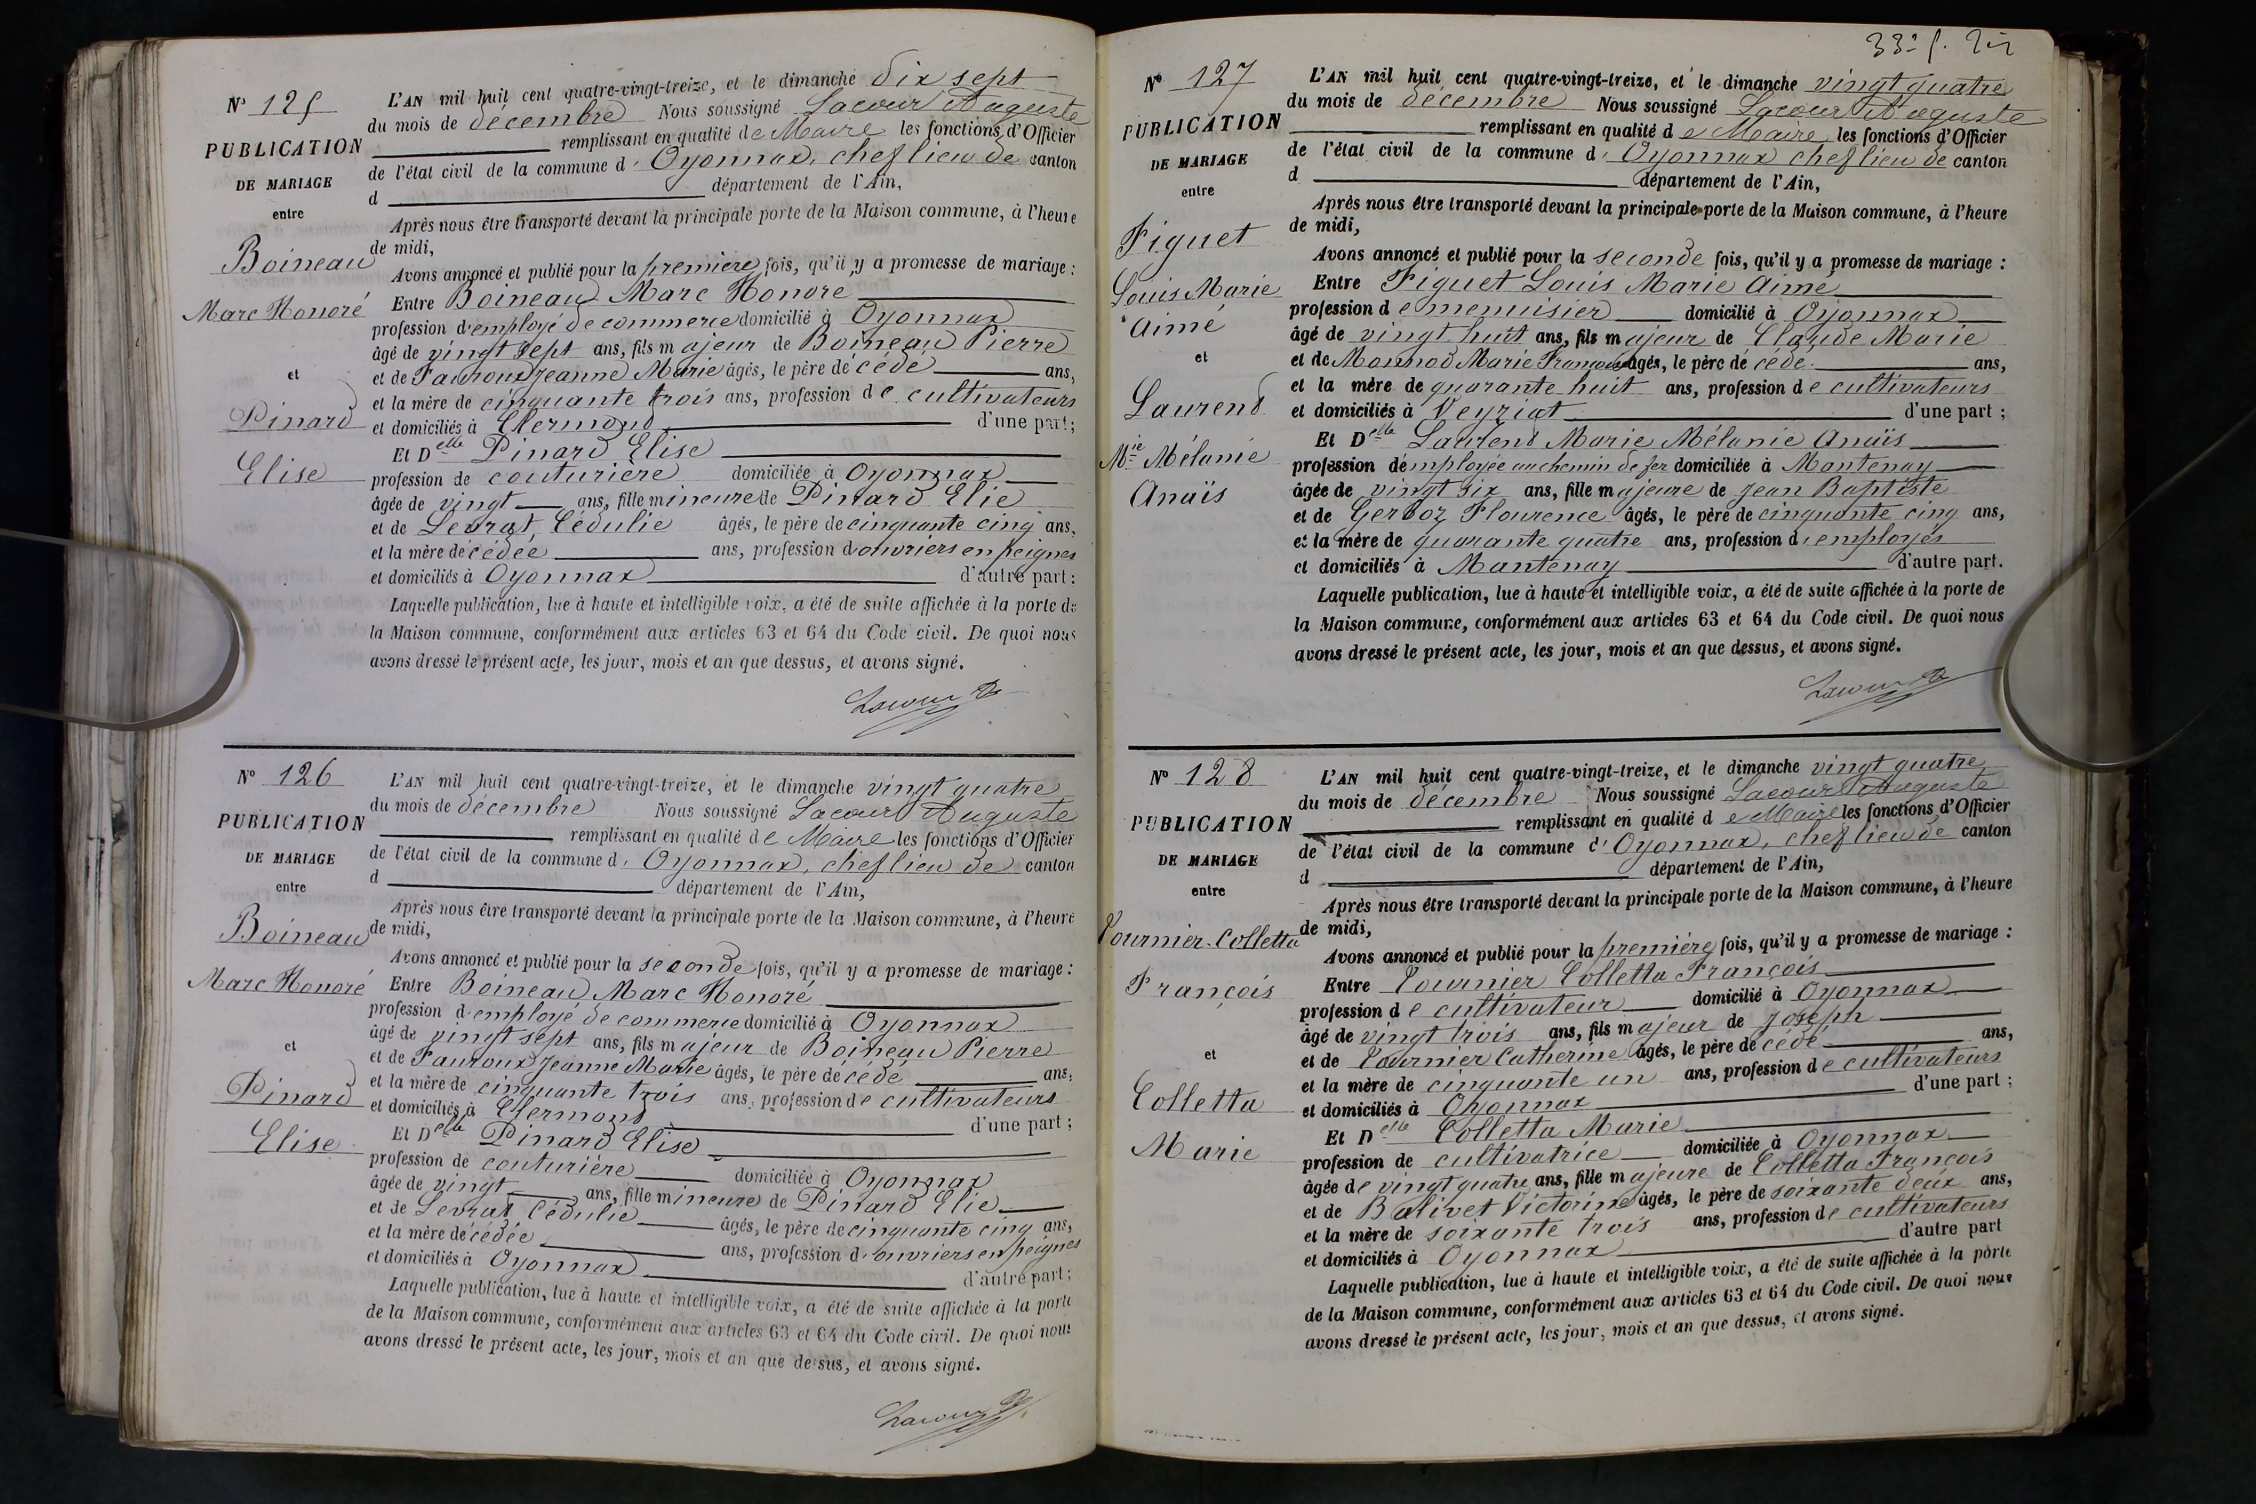 N° 125
PUBLICATION
DE MARIAGE
entre
Boineau
Marc Honoré
et
Pinard
Elise
L'AN mil huit cent quatre-vingt-treize, et le dimanche dix sept
du mois de décembre Nous soussigné Lacour Auguste
remplissant en qualité de Maire les fonctions d'Officier
de l'état civil de la commune d' Oyonnax, chef lieu de canton
d département de l'Ain,
Après nous être transporté devant la principale porte de la Maison commune, à l'heure
de midi,
Avons annoncé et publié pour la première fois, qu'il y a promesse de mariage :
Entre Boineau Marc Honoré
profession d'employé de commerce domicilié à Oyonnax
âgé de vingt sept ans, fils majeur de Boineau Pierre
et de Fauroux Jeanne Marie âgés, le père décédé ans,
et la mère de cinquante trois ans, profession de cultivateurs
et domiciliés à Clermond d'une part;
Et Delle Pinard Elise
profession de couturière domiciliée à Oyonnax
âgée de vingt ans, fille mineure de Pinard Elie
et de Levrat Cédulie âgés, le père de cinquante cinq ans,
et la mère décédée ans, profession d'ouvriers en peignes
et domiciliés à Oyonnax d'autre part :
Laquelle publication, lue à haute et intelligible voix, a été de suite affichée à la porte de
la Maison commune, conformément aux articles 63 et 64 du Code civil. De quoi nous
avons dressé le présent acte, les jour, mois et an que dessus, et avons signé.
Lacour A
N° 126
PUBLICATION
DE MARIAGE
entre
Boineau
Marc Honoré
et
Pinard
Elise
L'AN mil huit cent quatre-vingt-treize, et le dimanche vingt quatre
du mois de décembre Nous soussigné Lacour Auguste
remplissant en qualité de Maire les fonctions d'Officier
de l'état civil de la commune d' Oyonnax, chef lieu de canton
d département de l'Ain,
Après nous être transporté devant la principale porte de la Maison commune, à l'heure
de midi,
Avons annoncé et publié pour la seconde fois, qu'il y a promesse de mariage :
Entre Boineau Marc Honoré
profession d'employé de commerce domicilié à Oyonnax
âgé de vingt sept ans, fils majeur de Boineau Pierre
et de Fauroux Jeanne Marie âgés, le père décédé ans,
et la mère de cinquante trois ans, profession de cultivateurs
et domiciliés à Clermond d'une part ;
Et Delle Pinard Elise
profession de couturière domiciliée à Oyonnax
âgée de vingt ans, fille mineure de Pinard Elie
et de Levrat Cédulie âgés, le père de cinquante cinq ans,
et la mère décédée ans, profession d'ouvriers en peignes
et domiciliés à Oyonnax d'autre part ;
Laquelle publication, lue à haute et intelligible voix, a été de suite affichée à la porte
de la Maison commune, conformément aux articles 63 et 64 du Code civil. De quoi nous
avons dressé le présent acte, les jour, mois et an que dessus, et avons signé.
Lacour A
N° 127
PUBLICATION
DE MARIAGE
entre
Figuet
Louis Marie
Aimé
et
Laurend
Mie Mélanie
Anaïs
L'AN mil huit cent quatre-vingt-treize, et le dimanche vingt quatre
du mois de décembre Nous soussigné Lacour Auguste
remplissant en qualité de Maire les fonctions d'Officier
de l'état civil de la commune d' Oyonnax chef lieu de canton
d département de l'Ain,
Après nous être transporté devant la principale porte de la Maison commune, à l'heure
de midi,
Avons annoncé et publié pour la seconde fois, qu'il y a promesse de mariage :
Entre Figuet Louis Marie Aimé
profession de menuisier domicilié à Oyonnax
âgé de vingt huit ans, fils majeur de Claude Marie
et de Monnod Marie Françoise âgés, le père décédé ans,
et la mère de quarante huit ans, profession de cultivateurs
et domiciliés à Veyziat d'une part ;
Et Delle Laurend Marie Mélanie Anaïs
profession d'employée au chemin de fer domiciliée à Montenay
âgée de vingt six ans, fille majeure de Jean Baptiste
et de Gerboz Flourence âgés, le père de cinquante cinq ans,
et la mère de quarante quatre ans, profession d'employés
et domiciliés à Mantenay d'autre part.
Laquelle publication, lue à haute et intelligible voix, a été de suite affichée à la porte de
la Maison commune, conformément aux articles 63 et 64 du Code civil. De quoi nous
avons dressé le présent acte, les jour, mois et an que dessus, et avons signé.
Lacour A
N° 128
PUBLICATION
DE MARIAGE
entre
Tournier-Colletta
François
et
Colletta
Marie
L'AN mil huit cent quatre-vingt-treize, et le dimanche vingt quatre
du mois de décembre Nous soussigné Lacour Auguste
remplissant en qualité de Maire les fonctions d'Officier
de l'état civil de la commune d' Oyonnax, chef lieu de canton
d département de l'Ain,
Après nous être transporté devant la principale porte de la Maison commune, à l'heure
de midi,
Avons annoncé et publié pour la première fois, qu'il y a promesse de mariage :
Entre Tournier Colletta François
profession de cultivateur domicilié à Oyonnax
âgé de vingt trois ans, fils majeur de Joseph
et de Tournier Catherine âgés, le père décédé ans,
et la mère de cinquante un ans, profession de cultivateurs
et domiciliés à Oyonnax d'une part ;
Et Delle Colletta Marie
profession de cultivatrice domiciliée à Oyonnax
âgée de vingt quatre ans, fille majeure de Colletta François
et de Balivet Victorine âgés, le père de soixante deux ans,
et la mère de soixante trois ans, profession de cultivateurs
et domiciliés à Oyonnax d'autre part
Laquelle publication, lue à haute et intelligible voix, a été de suite affichée à la porte
de la Maison commune, conformément aux articles 63 et 64 du Code civil. De quoi nous
avons dressé le présent acte, les jour, mois et an que dessus, et avons signé.